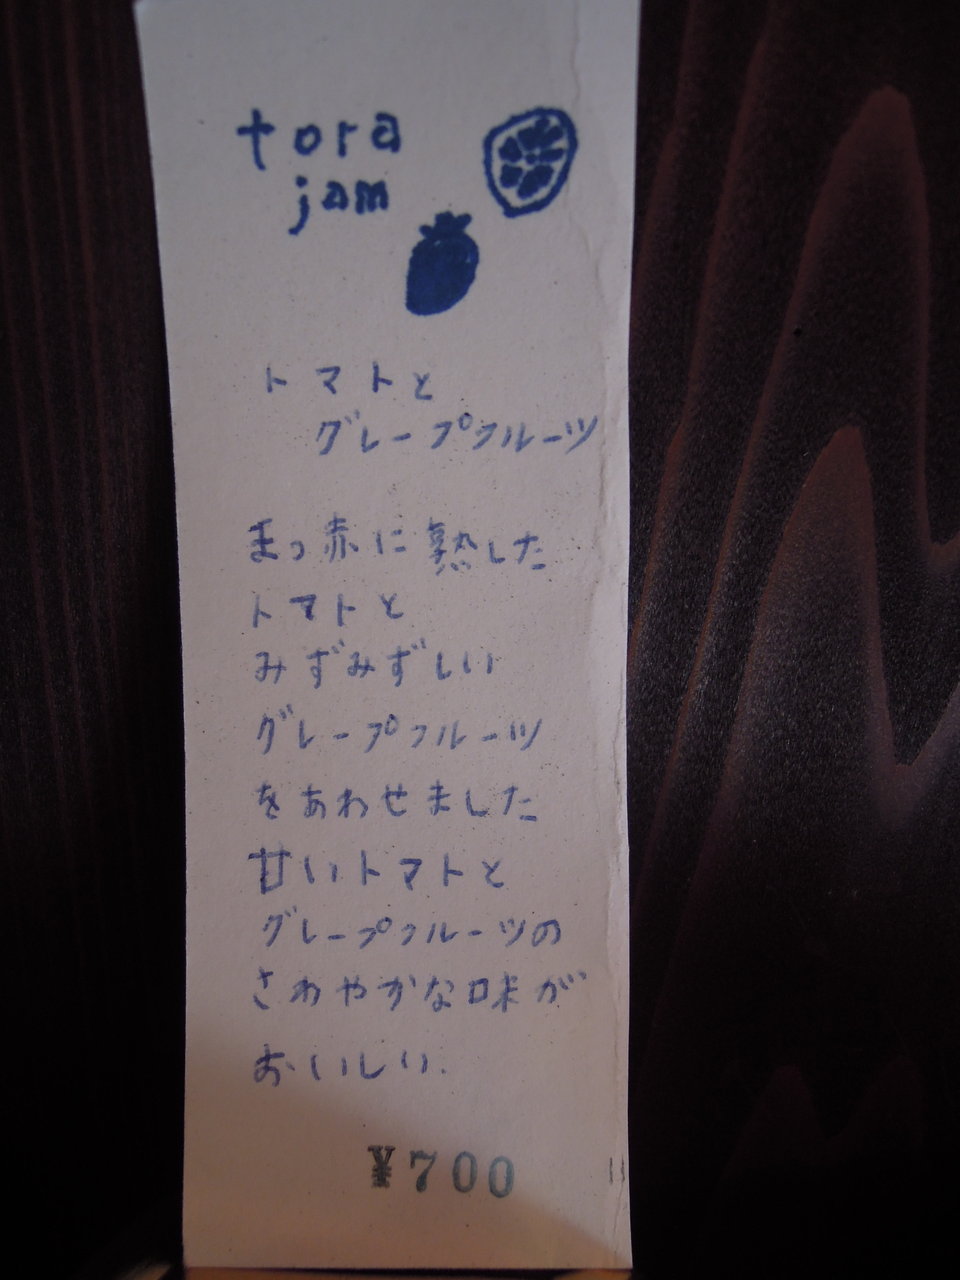 tora
jam
トマトと
グレープフルーツ
まっ赤に熟した
トマトと
みずみずしい
グレープフルーツ
をあわせました
甘いトマトと
グレープフルーツの
さわやかな味が
おいしい.
¥700